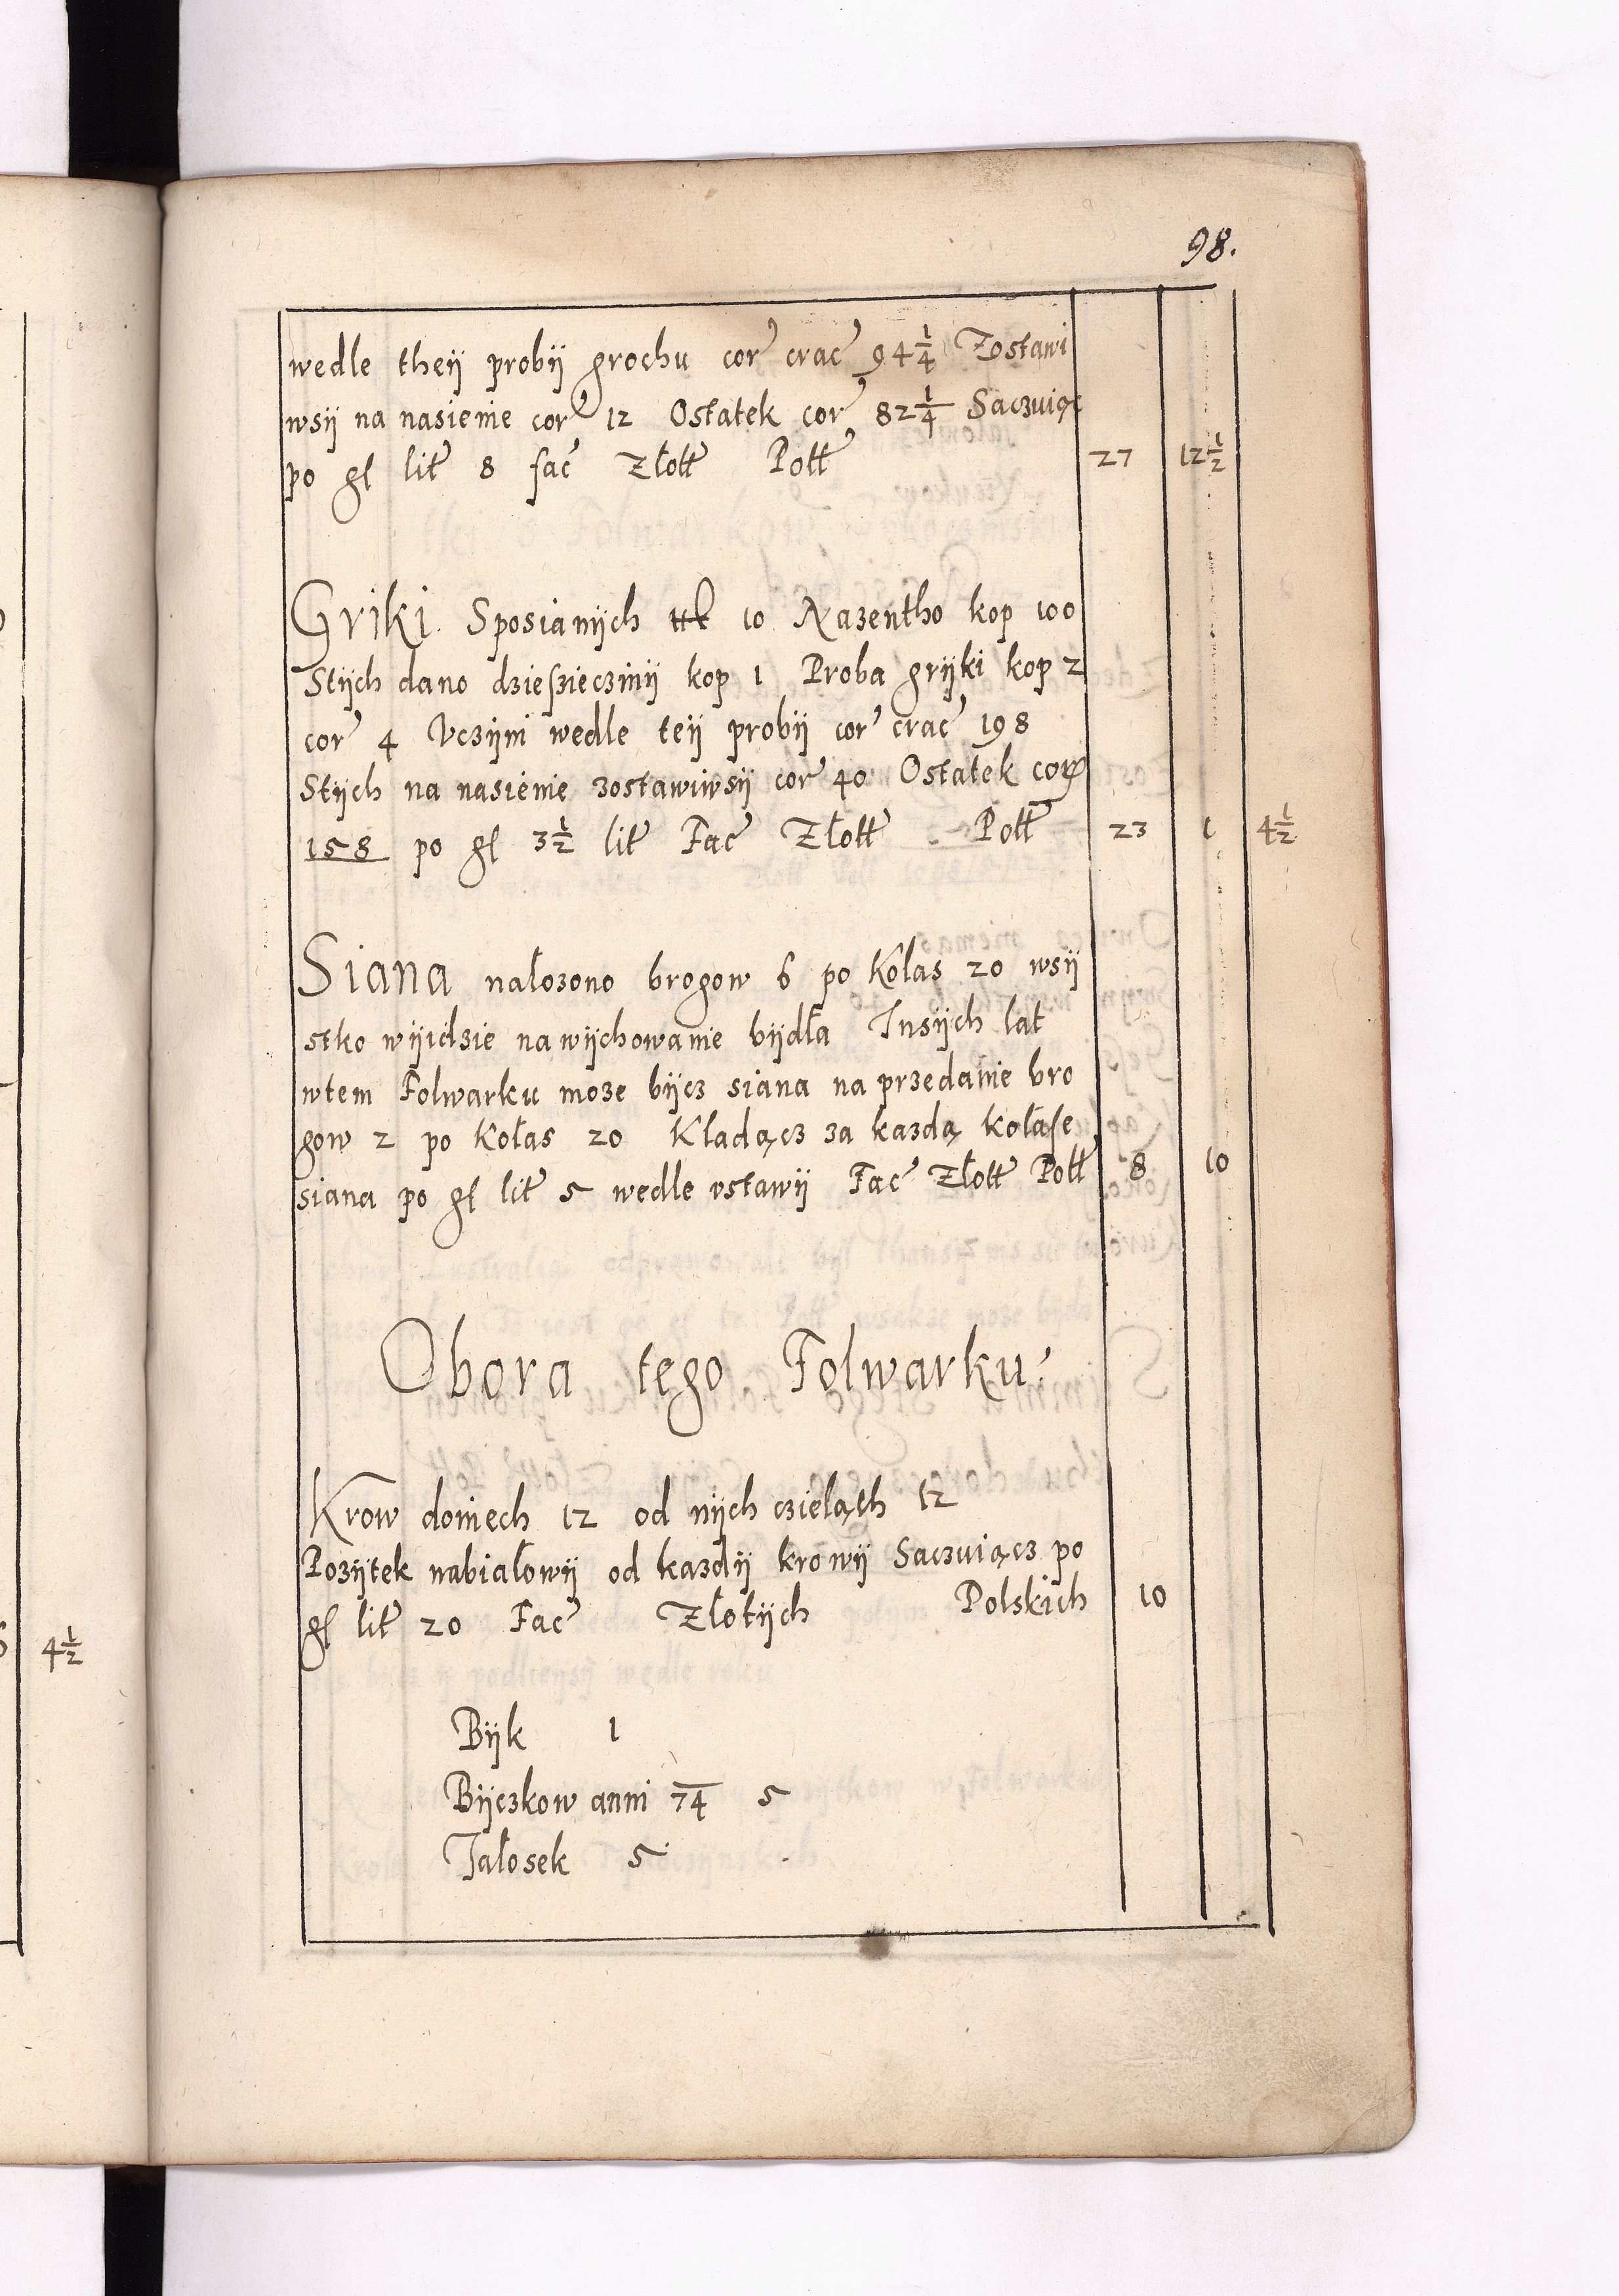 98.
wedle theÿ probÿ grochu cor crac 94 1/4 Zostawi
wsÿ na nasienie cor 12 Ostatek cor 82 1/4 Saczuiąc
po gł lit 8 fac Złott Pott 27 12 1/2
Griki Sposianÿch 10 Nazentho kop 100
Stÿch dano dzieszieczinÿ kop 1 Proba grÿki kop 2
cor 4 Vczÿni wedle teÿ probÿ cor crac 198
Stÿch na nasienie zostawiwsÿ cor 40 Ostatek cor
158 po gł 3 1/2 lit Fac Złott Pott 23 1 4 1/2
Siana nałozono brogow 6 po Kolas 20 wsÿ
stko wÿidzie na wÿchowanie bÿdła Insÿch lat
wtem Folwarku moze bÿcz siana na przedanie bro
gow 2 po Kołas 20 Kładącz za kazdą kołase
siana po gł lit 5 wedle vstawÿ Fac Złott Pott 8 10
Obora tego Folwarku
Krow doniech 12 od nÿch czieląth 12
Pozÿtek nabiałowÿ od kazdÿ krowÿ Saczuiącz po
gł lit 20 Fac Złotÿch Polskich 10
Bÿk 1
Bÿczkow anni 74 5
Jałosek 5
4 1/2